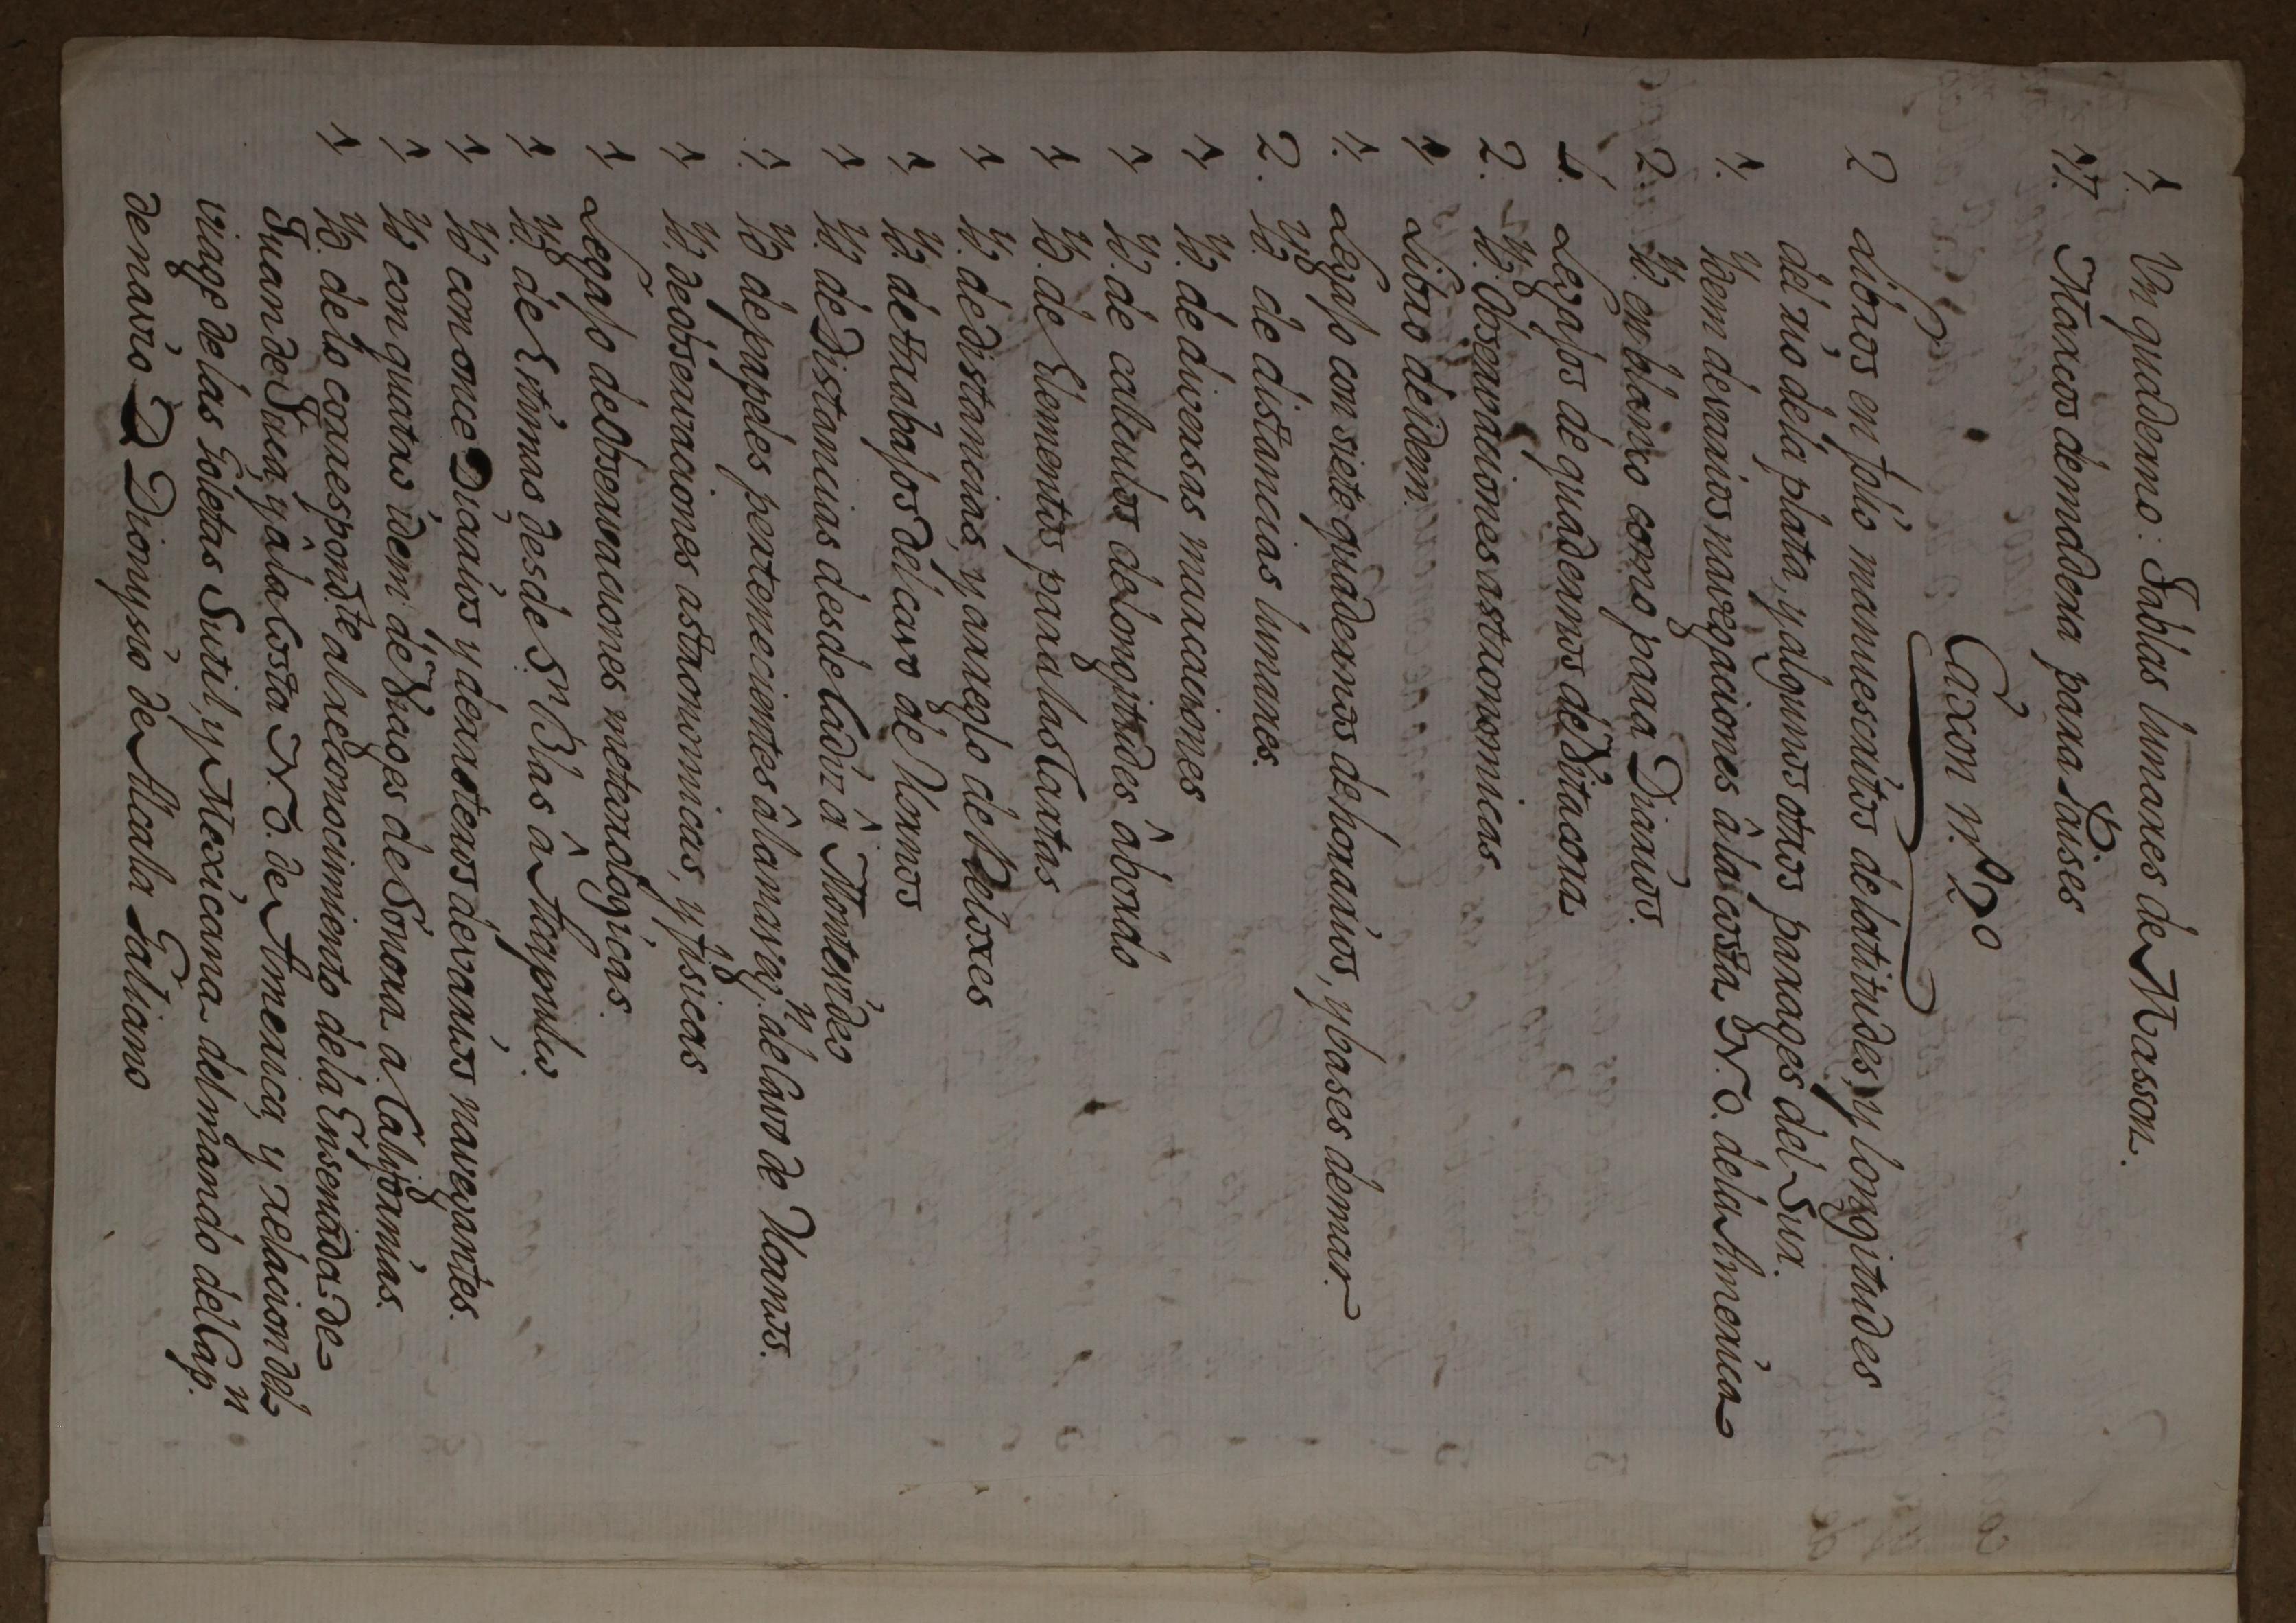 1. Un quaderno: Tablas lunares de Masson.
17. Marcos de madera para Paises
Caxon n.º 20
2 Libros en folio manuescritos de latitudes, y longitudes
del rio de la plata, y algunos otros parages del Sur.
1. Ydem de varios navegaciones â la costa N.O. de la America
2. Yd. en blanco como para Diarios.
4. Legajos de quadernos de Vitacora
2. Yd. Observaciones astronomicas
1. Libro de idem.
1. Legajo con siete quadernos de horarios, y bases de mar.
2. Yd. de distancias lunares.
1. Yd. de diversas marcaciones
1. Yd. de calculos de longitudes â bordo
1. Yd. de elementos para las Cartas
1. Yd. de distancias, y arreglo de Reloxes
1. Yd. de trabajos del cavo de Hornos
1. Yd. de Distancias desde Cadiz â Montevideo
1. Yd. de papeles pertenecientes â la naveg.n de Cavo de Hornos.
1. Yd. de observaciones astronomicas, y fisicas
1. Legajo de observaciones meteorologicas.
1. Yd. de Estimas desde S.n Blas â Acapulco.
1. Yd. con once Diarios y derroteros de varios navegantes.
1. Yd. con quatro idem de Viages de Sonora a Californias.
1. Yd. de lo correspond.te al reconocimiento de la Ensenada de
Juan de Fuca, y â la Costa N.O. de America, y relacion del
viage de las Goletas Sutil, y Mexicana del mando del Cap.n
de navio D Dionysio de Alcala Galiano